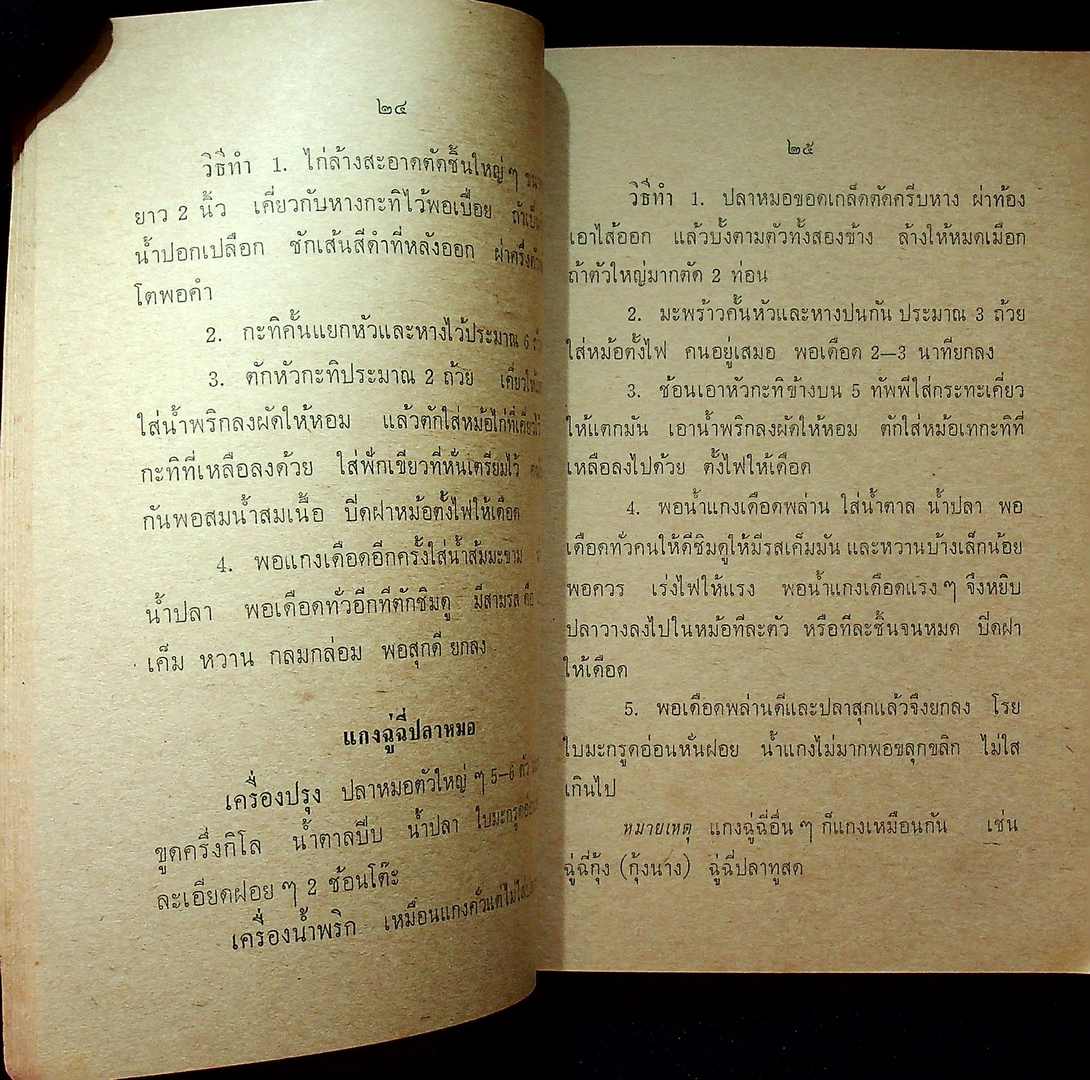 ๒๔
วิธีทำ 1. ไก่ล้างสะอาดตัดชิ้นใหญ่ ๆ
ยาว 2 นิ้ว เคี่ยวกับหางกะทิไว้พอเปื่อย
น้ำปอกเปลือก ชักเส้นสีดำที่หลังออก
โตพอคำ
2. กะทิคั้นแยกหัวและหางไว้ประมาณ 6
3. ตักหัวกะทิประมาณ 2 ถ้วย
ใส่น้ำพริกลงผัดให้หอม แล้วตักใส่หม้อไก่ที่เคี่ยวไว้
กะทิที่เหลือลงด้วย ใส่ฟักเขียวที่หั่นเตรียมไว้
กันพอสมน้ำสมเนื้อ ปิดฝาหม้อตั้งไฟให้เดือด
4. พอแกงเดือดอีกครั้งใส่น้ำส้มมะขาม
น้ำปลา พอเดือดทั่วอีกทีตักชิมดู มีสามรส คือ
เค็ม หวาน กลมกล่อม พอสุกดี ยกลง
แกงฉู่ฉี่ปลาหมอ
เครื่องปรุง ปลาหมอตัวใหญ่ ๆ 5—6
ขูดครึ่งกิโล น้ำตาลปีบ น้ำปลา
ละเอียดฝอย ๆ 2 ช้อนโต๊ะ
เครื่องน้ำพริก เหมือนแกงคั่วแต่ไม่ใส่
๒๕
วิธีทำ 1. ปลาหมอขอดเกล็ดตัดครีบหาง ผ่าท้อง
เอาไส้ออก แล้วบั้งตามตัวทั้งสองข้าง ล้างให้หมดเมือก
ถ้าตัวใหญ่มากตัด 2 ท่อน
2. มะพร้าวคั้นหัวและหางปนกัน ประมาณ 3 ถ้วย
ใส่หม้อตั้งไฟ คนอยู่เสมอ พอเดือด 2—3 นาทียกลง
3. ช้อนเอาหัวกะทิข้างบน 5 ทัพพีใส่กระทะเคี่ยว
ให้แตกมัน เอาน้ำพริกลงผัดให้หอม ตักใส่หม้อเทกะทิที่
เหลือลงไปด้วย ตั้งไฟให้เดือด
4. พอน้ำแกงเดือดพล่าน ใส่น้ำตาล น้ำปลา พอ
เดือดทั่วคนให้ดีชิมดูให้มีรสเค็มมัน และหวานบ้างเล็กน้อย
พอควร เร่งไฟให้แรง พอน้ำแกงเดือดแรง ๆ จึงหยิบ
ปลาวางลงไปในหม้อทีละตัว หรือทีละชิ้นจนหมด ปิดฝา
ให้เดือด
5. พอเดือดพล่านดีและปลาสุกแล้วจึงยกลง โรย
ใบมะกรูดอ่อนหั่นฝอย น้ำแกงไม่มากพอขลุกขลิก ไม่ใส
เกินไป
หมายเหตุ แกงฉู่ฉี่อื่น ๆ ก็แกงเหมือนกัน เช่น
ฉู่ฉี่กุ้ง (กุ้งนาง) ฉู่ฉี่ปลาทูสด